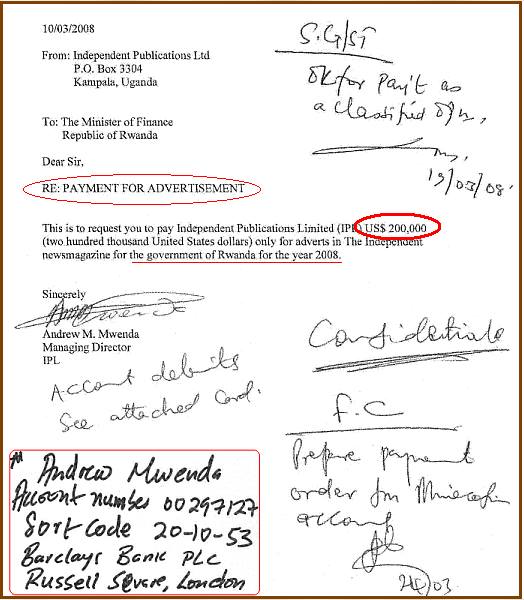 10/03/2008
From: Independent Publications Ltd
P.O. Box 3304
Kampala, Uganda
To: The Minister of Finance
Republic of Rwanda
Dear Sir,
RE: PAYMENT FOR ADVERTISEMENT
This is to request you to pay Independent Publications Limited (IPL) US$ 200,000
(two hundred thousand United States dollars) only for adverts in The Independent
newsmagazine for the government of Rwanda for the year 2008.
Sincerely
Andrew M. Mwenda
Managing Director
IPL
Account details
See attached Card.
Andrew Mwenda
Account number 00297127
Sort Code 20-10-53
Barclays Bank PLC
Russell Square, London
S.G/ST
OK for Pay't as
a classified
19/03/08
Confidentiale
F.C
Prepare payment
order for Minecofin
account